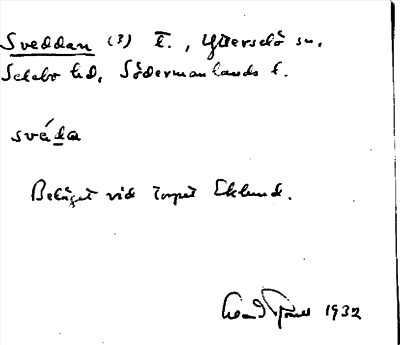 Sveddan (?) t., Ytterselö sn.
Selebo hd, Södermanlands l.
svéda
Beläget vid torpet Eklund.
1932